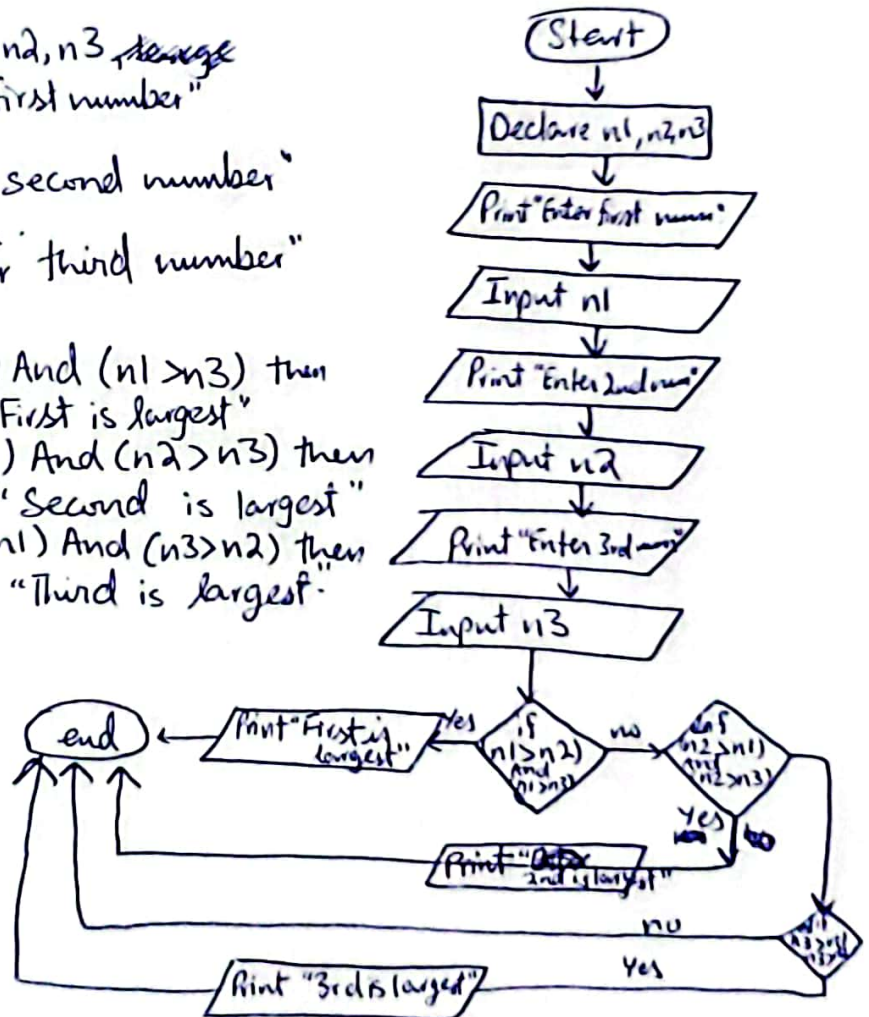 n2, n3
first number"
second number"
third number"
And (n1 > n3) then
First is largest"
) And (n2 > n3) then
"Second is largest"
n1) And (n3 > n2) then
"Third is largest"
Start
Declare n1, n2, n3
Print "Enter first num"
Input n1
Print "Enter 2nd num"
Input n2
Print "Enter 3rd num"
Input n3
if
(n1 > n2)
And
(n1 > n3)
Yes
Print "First is
largest"
end
no
(n2 > n1)
And
(n2 > n3)
Yes
Print "
2nd is largest"
no
Yes
Print "3rd is largest"